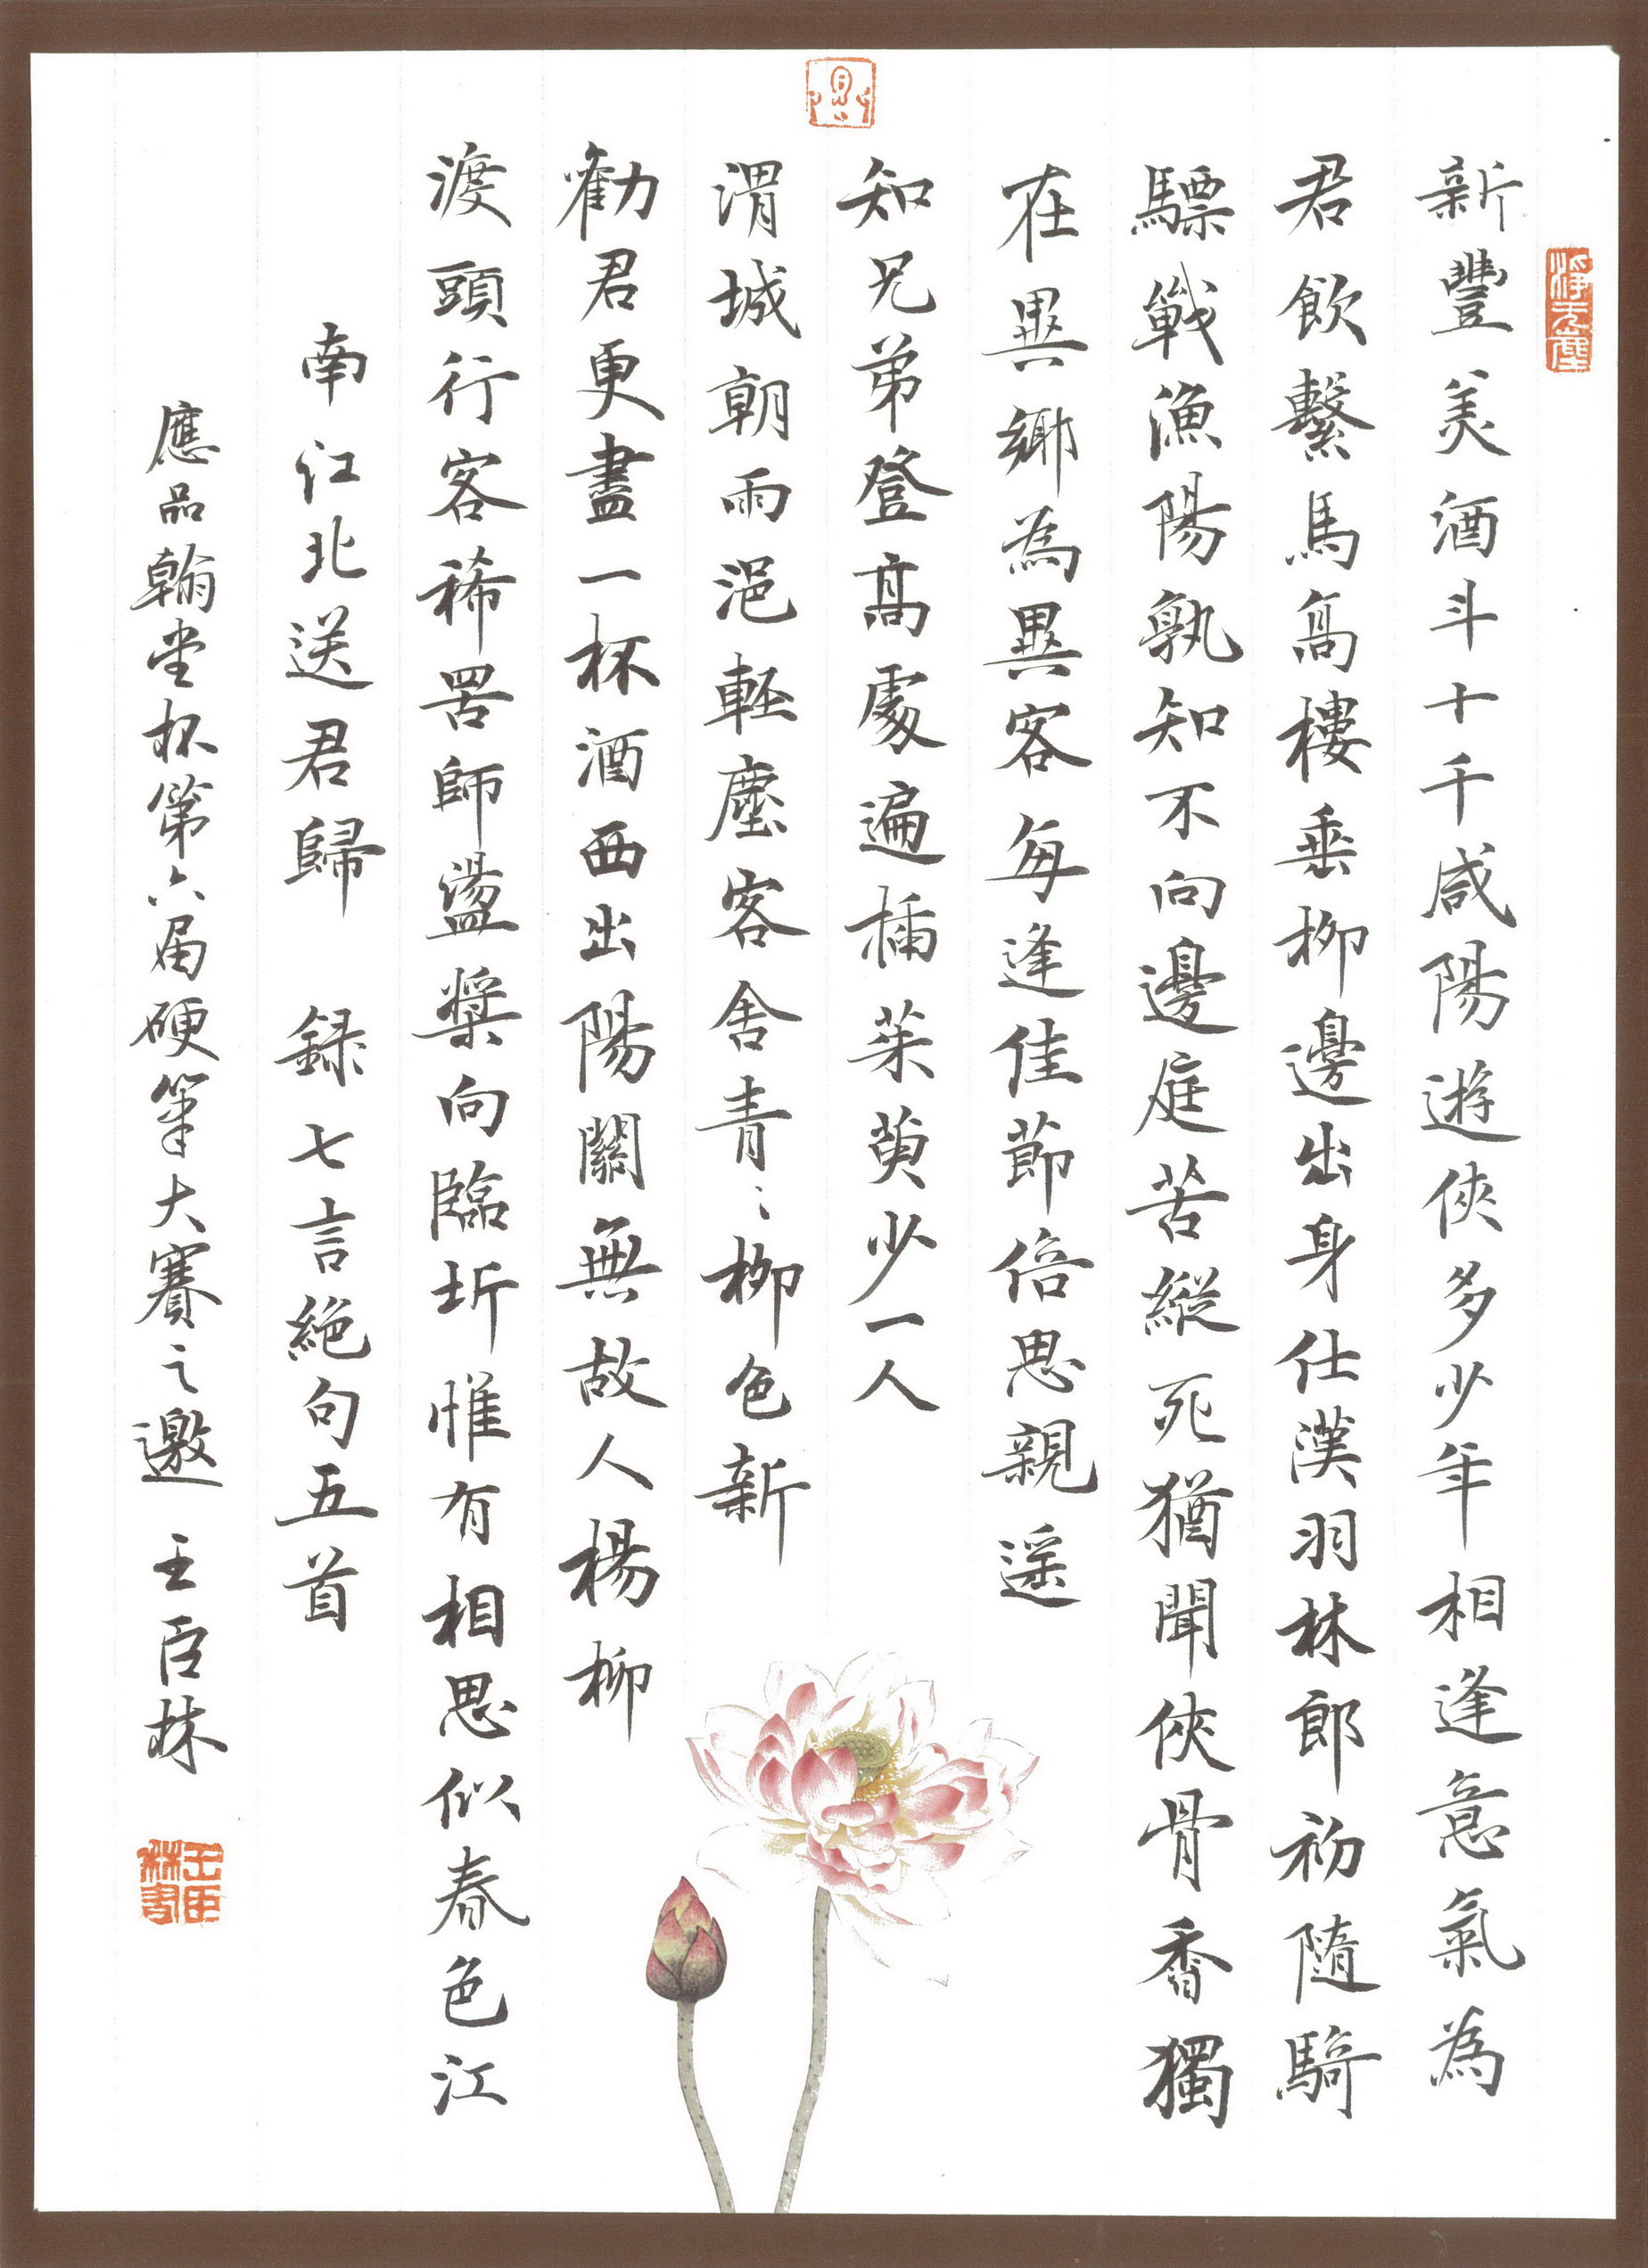 淨无塵
新豐美酒斗十千咸陽遊俠多少年相逢意氣為
君飲繫馬高樓垂柳邊出身仕漢羽林郎初隨騎
驃戰漁陽孰知不向邊庭苦縱死猶聞俠骨香獨
在異鄉為異客每逢佳節倍思親遥
知兄弟登高處遍插茱萸少一人
渭城朝雨浥輕塵客舍青〻柳色新
勸君更盡一杯酒西出陽關無故人楊柳
渡頭行客稀罟師盪槳向臨圻惟有相思似春色江
南江北送君歸 録七言絶句五首
應品翰堂杯第六届硬筆大賽之邀 王臣林
王臣林書